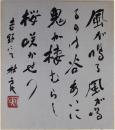 風が鳴る風が鳴
るの谷あいに
鬼が棲むらし
桜咲かせり
吉野にて